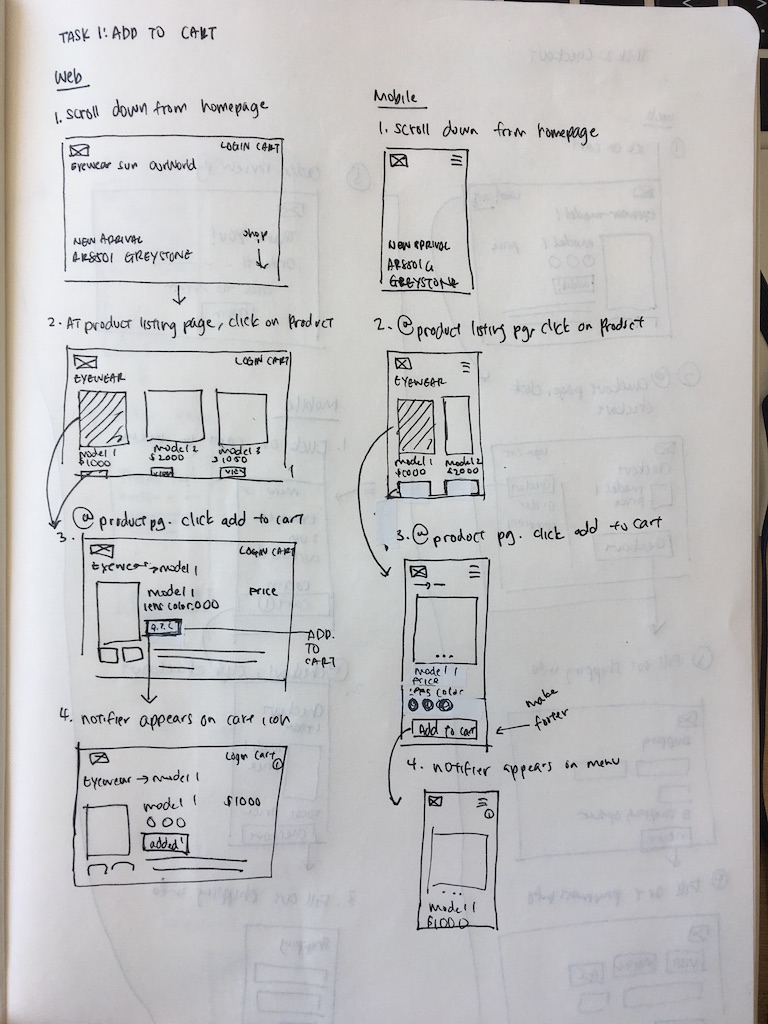 TASK 1: ADD TO CART
Web
1. scroll down from homepage
LOGIN CART
Eyewear Sun OurWorld
NEW ARRIVAL
AR8501 GREYSTONE
shop
2. AT product listing page, click on Product
LOGIN CART
EYEWEAR
model 1
$1000
model 2
$2000
VIEW
model 3
$1050
VIEW
3. @ product pg. click add to cart
LOGIN CART
Eyewear → model 1
model 1
price
lens color: 000
A.T.C
ADD.
TO
CART
4. notifier appears on cart icon
Login Cart
1
Eyewear → model 1
model 1
$1000
added!
Mobile
1. scroll down from homepage
NEW ARRIVAL
AR8501 G
GREYSTONE
2. @ product listing pg, click on Product
EYEWEAR
model 1
model 2
$2000
3. @ product pg. click add to cart
model 1
PRICE
lens color
Add to cart
make
footer
4. notifier appears on menu
1
model 1
$1000